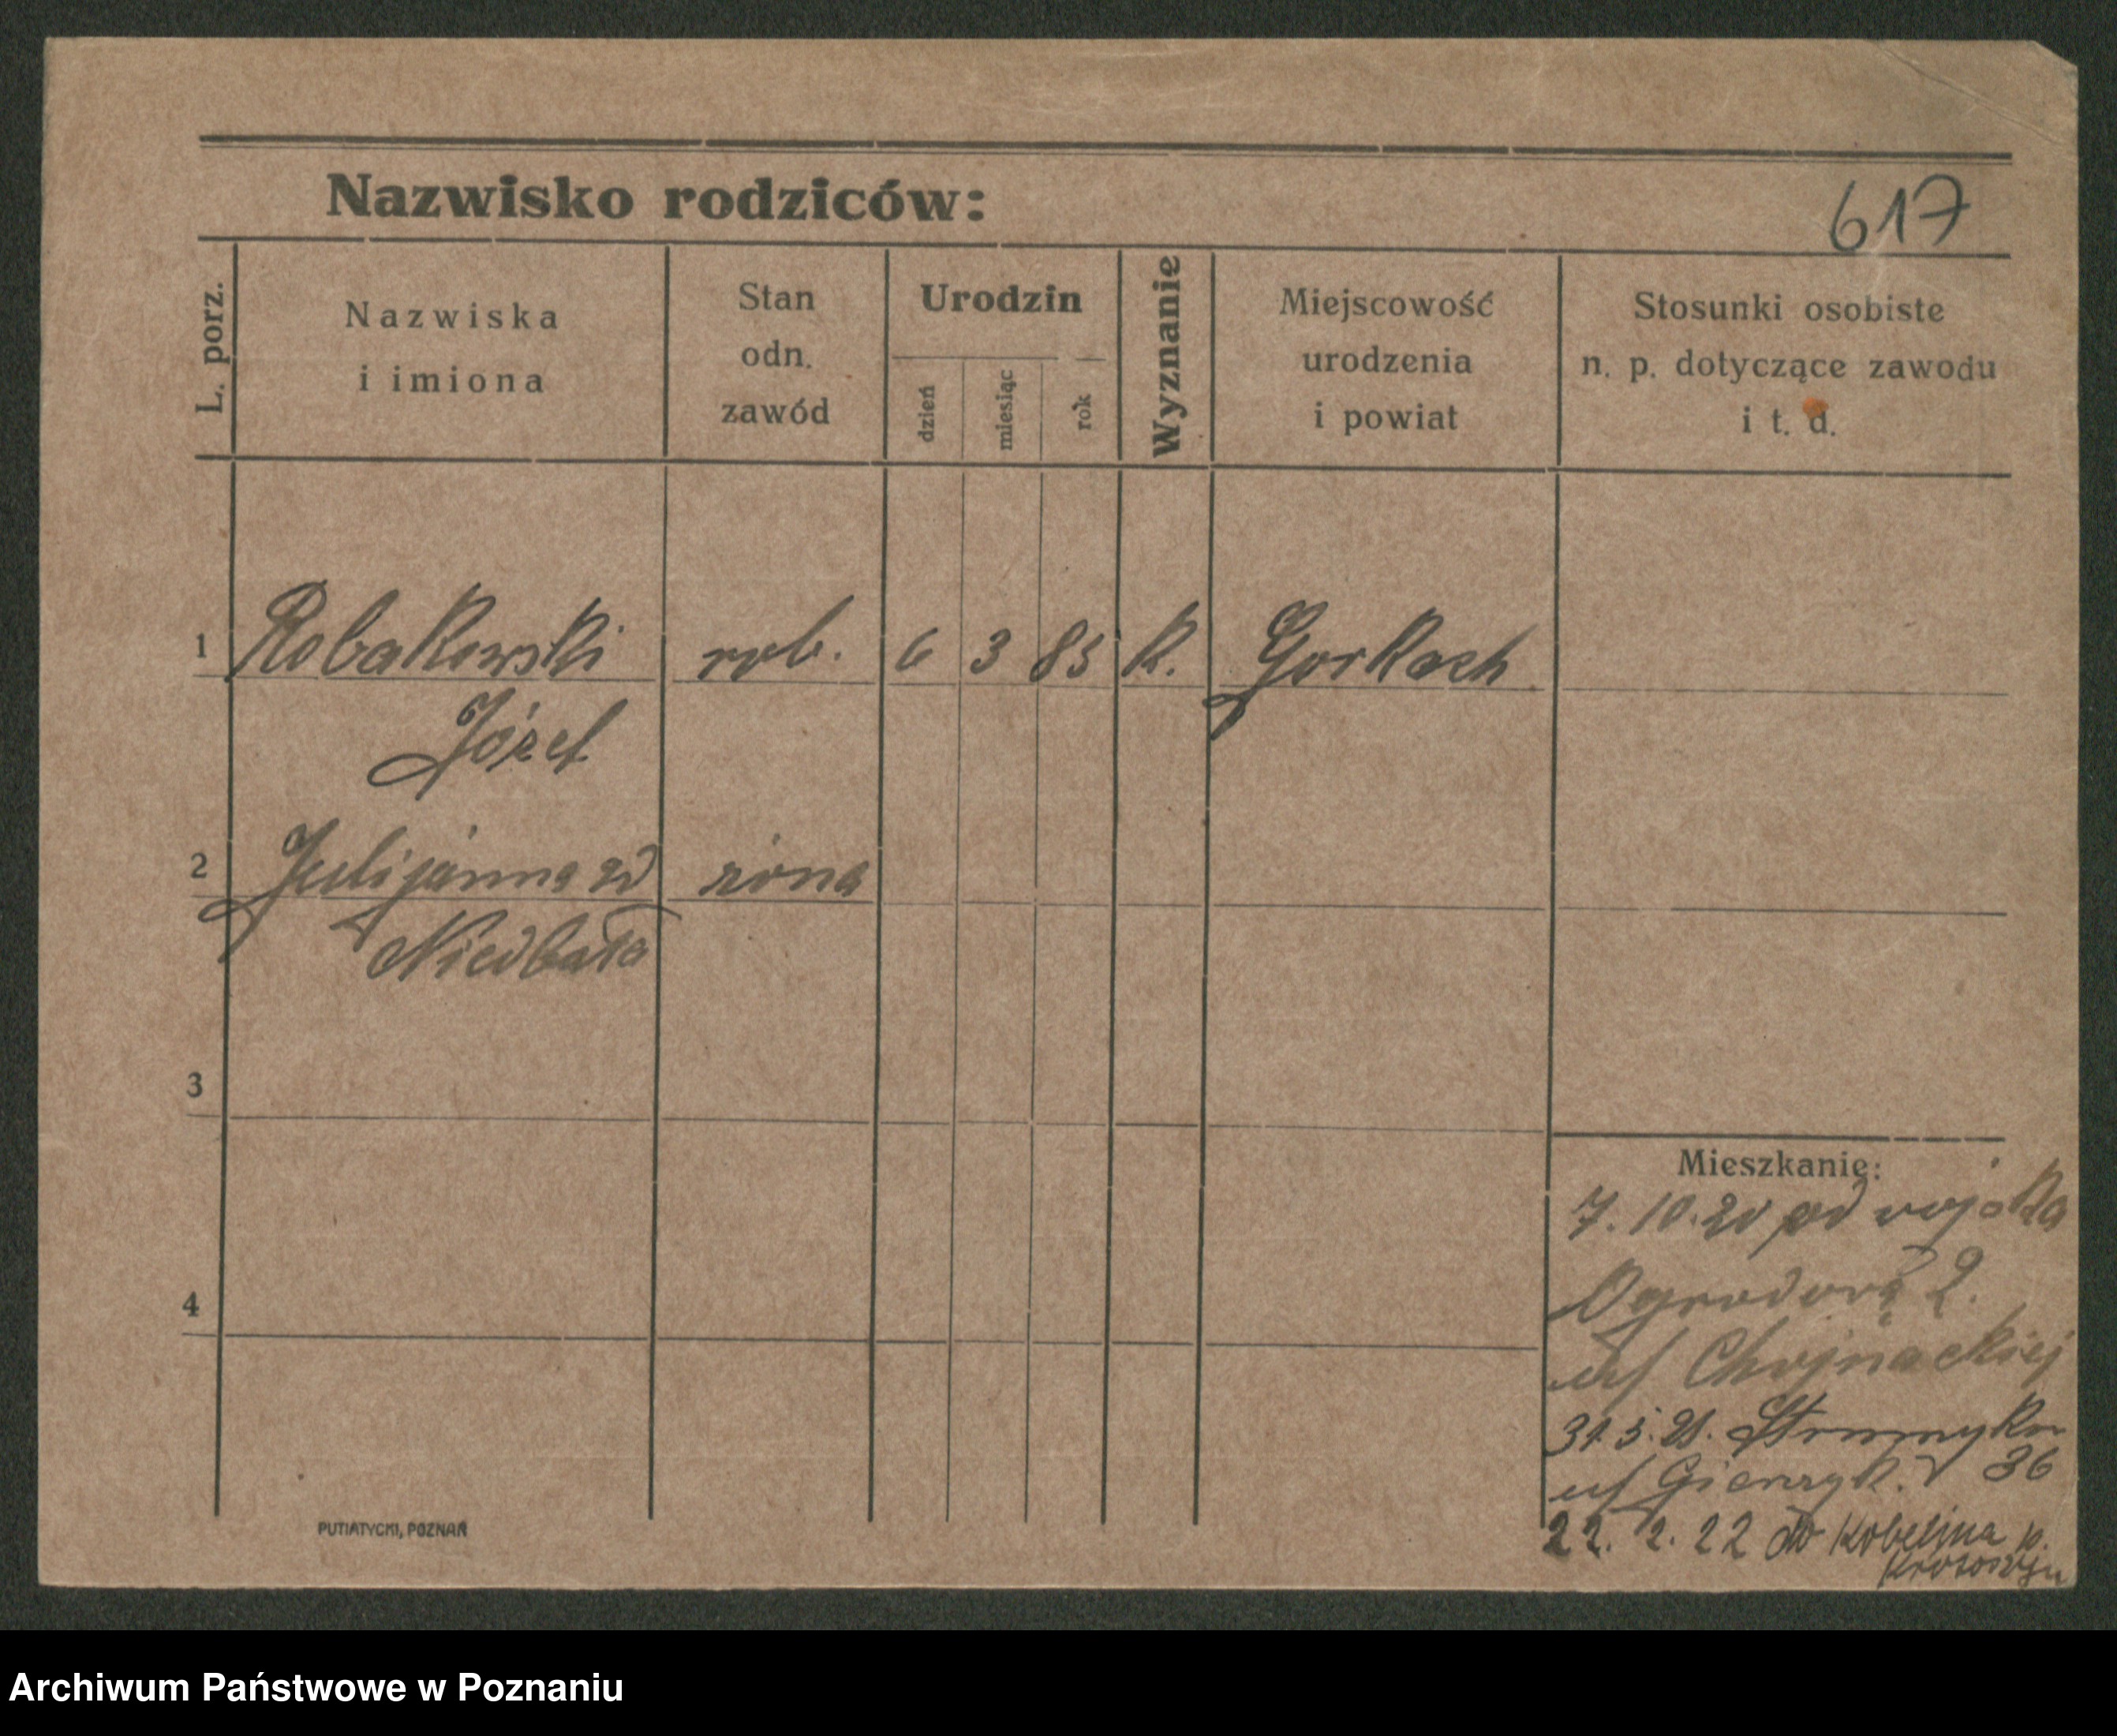 Nazwisko rodziców:
617
L. porz.
Nazwiska
i imiona
Stan
odn.
zawód
Urodzin
dzień
miesiąc
rok
Wyznanie
Miejscowość
urodzenia
i powiat
Stosunki osobiste
n. p. dotyczące zawodu
i t. d.
1 Robakowski rob. 6 3 83 K. Gorkach
Józef
2 Julijanna zd żona
Niedbała
3
4
Mieszkanie:
7.10.20 od wojska
Ogrodowa 2.
u/ Chojnackiej
31.5.21.
u/ 36
22. 2. 22 do Kobelina p.
Krotoszyn
PUTIATYCKI, POZNAŃ
Archiwum Państwowe w Poznaniu